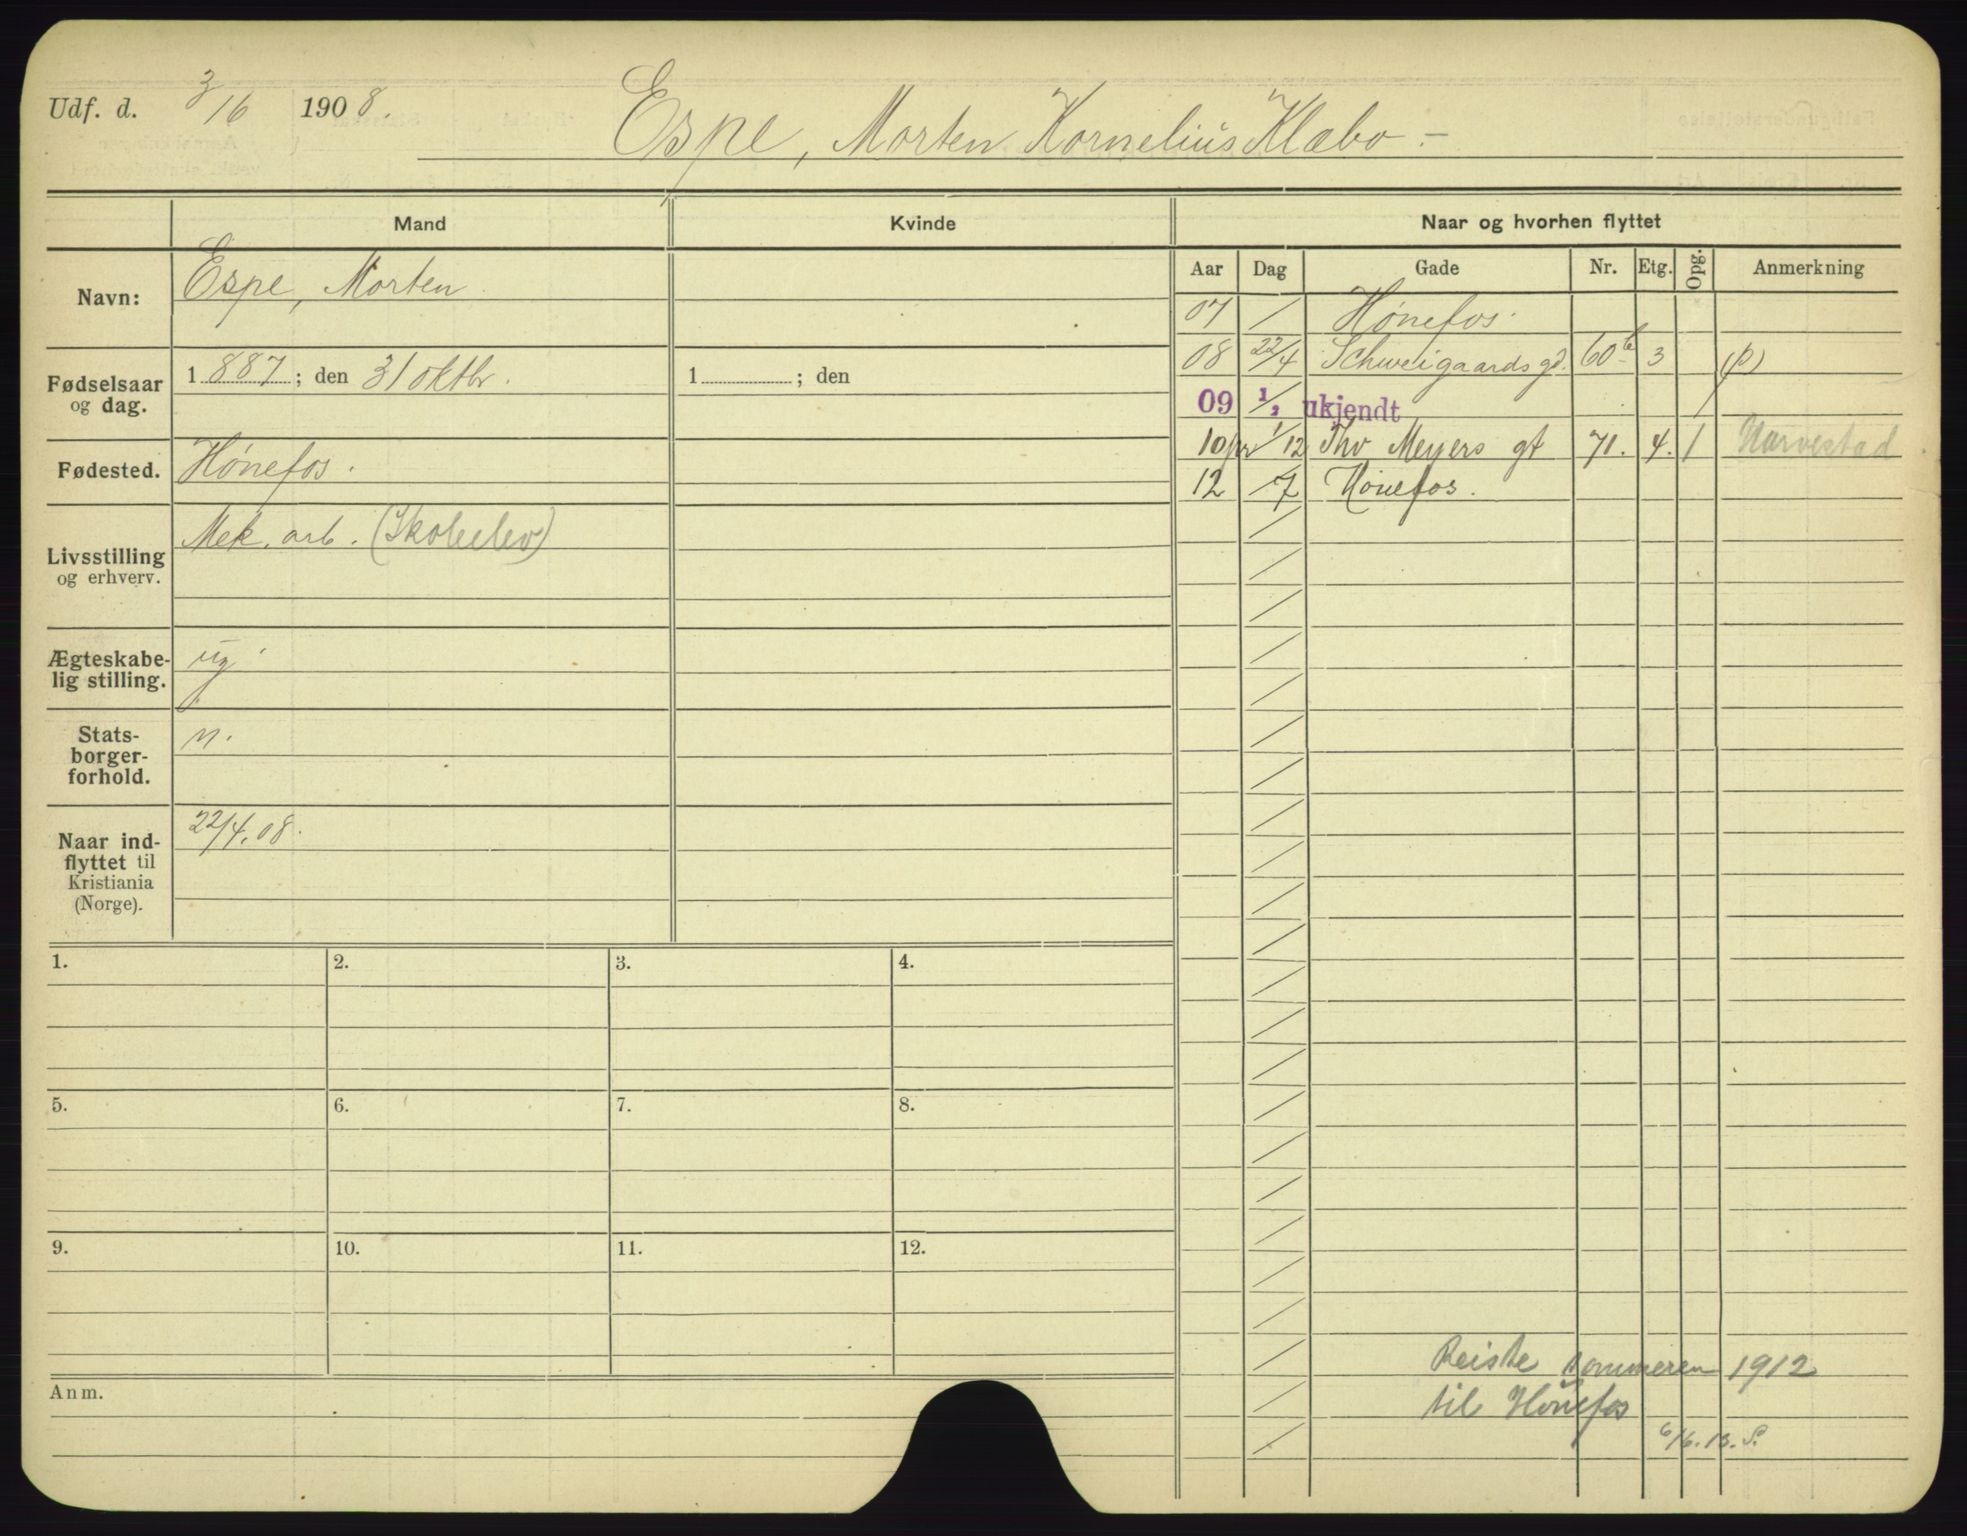 Udf. d. 3/16 1908.
Espe, Morten Kornelius Klæbo -
Mand
Kvinde
Naar og hvorhen flyttet
Aar Dag Gade Nr. Etg. Opg. Anmerkning
Navn: Espe, Morten
Fødselsaar og dag. 1887; den 31 oktbr. 1 ; den
Fødested. Hønefos.
Livsstilling og erhverv. Mek. arb. (Skoleelev)
Ægteskabelig stilling. ug.
Statsborgerforhold. n.
Naar indflyttet til Kristiania (Norge). 22/4.08.
07 / Hønefos.
08 22/4 Schweigaards gd. 60b 3 (p)
09 1/2 ukjendt
10 pr 1/12 Thv Meyers gt 71. 4. 1 Harvestad
12 /7 Hønefos.
1.
2.
3.
4.
5.
6.
7.
8.
9.
10.
11.
12.
Anm.
Reiste sommeren 1912
til Hønefos
6/6.13. S.